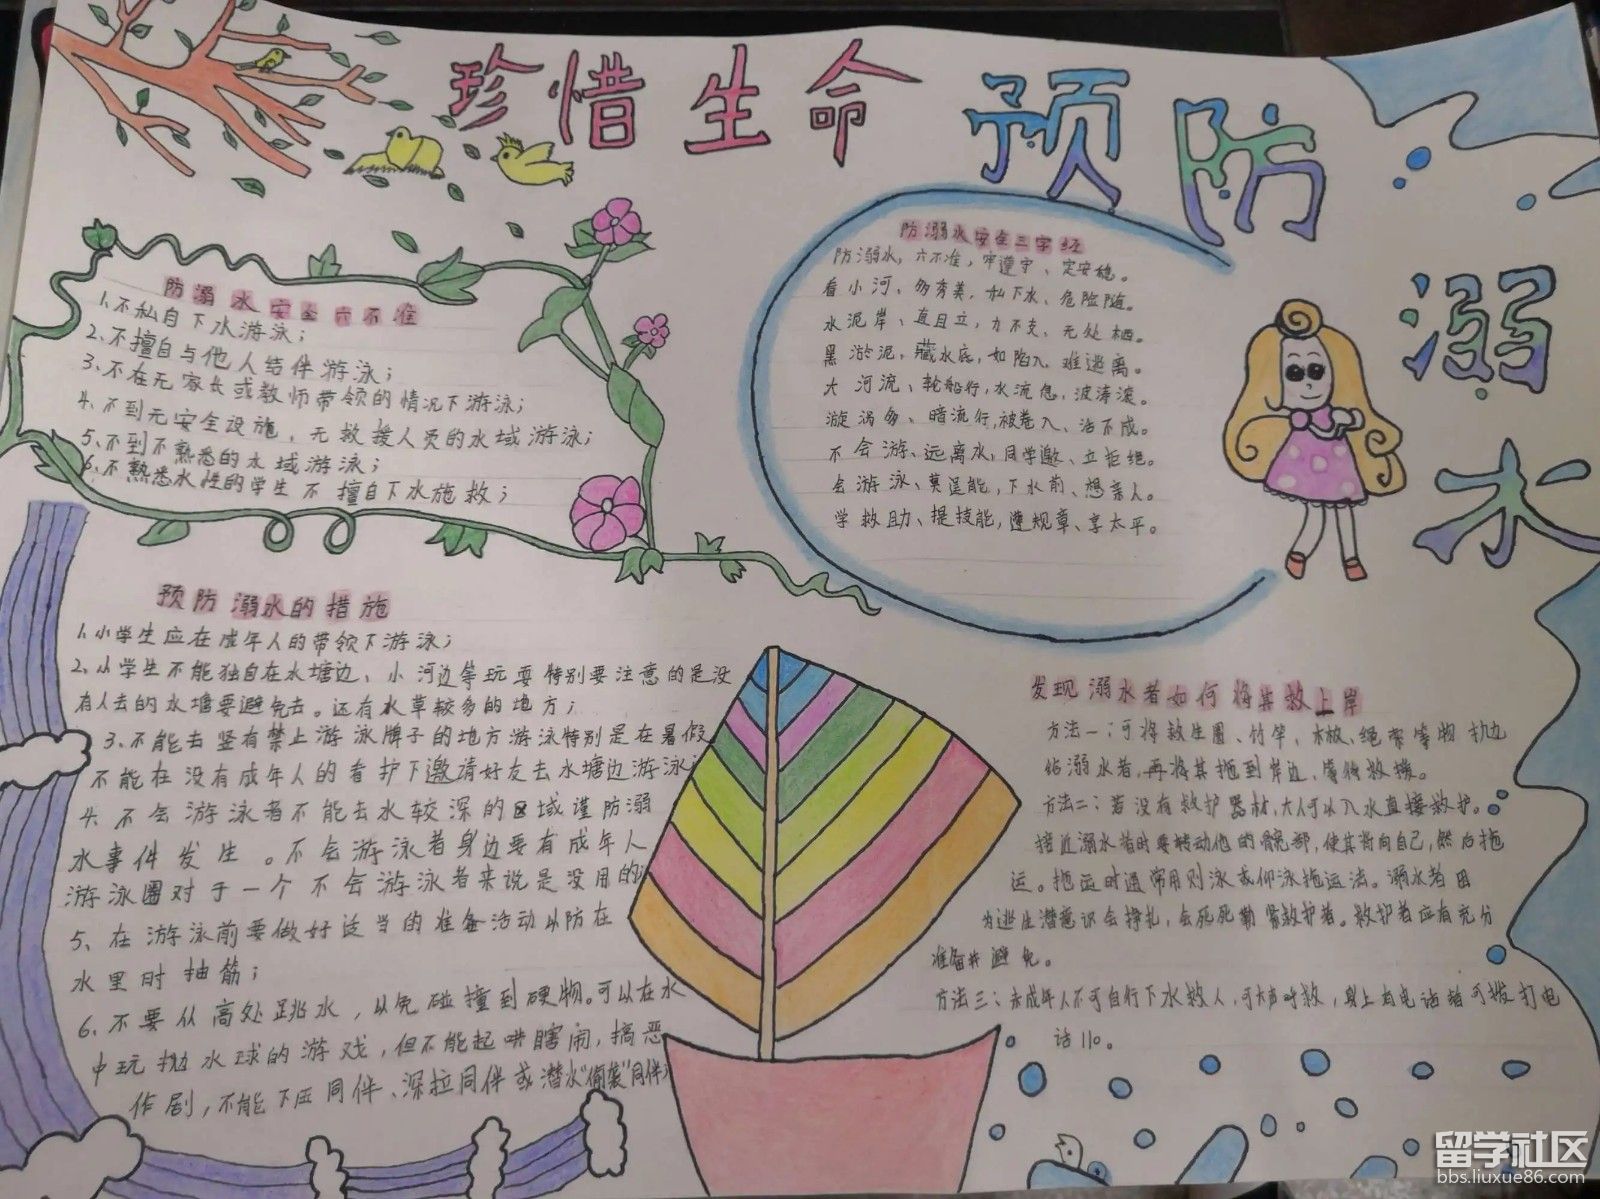 珍惜生命 预防溺水
防溺水安全六不准
1、不私自下水游泳；
2、不擅自与他人结伴游泳；
3、不在无家长或教师带领的情况下游泳；
4、不到无安全设施，无救援人员的水域游泳；
5、不到不熟悉的水域游泳；
6、不熟悉水性的学生不擅自下水施救；
防溺水安全三字经
防溺水，六不准，牢遵守、定安稳。
看小河、多秀美，私下水、危险随。
水泥岸、直且立，力不支、无处栖。
黑淤泥，藏水底，如陷入、难逃离。
大河流、轮船行，水流急，波涛滚。
漩涡多、暗流行，被卷入、活不成。
不会游、远离水，同学邀、立拒绝。
会游泳、莫逞能，下水前、想亲人。
学救助、提技能，遵规章、享太平。
预防溺水的措施
1、小学生应在成年人的带领下游泳；
2、小学生不能独自在水塘边、小河边等玩耍特别要注意的是没
有人去的水塘要避免去。还有水草较多的地方；
3、不能去竖有禁止游泳牌子的地方游泳特别是在暑假
不能在没有成年人的看护下邀请好友去水塘边游泳
4、不会游泳者不能去水较深的区域谨防溺
水事件发生。不会游泳者身边要有成年人
游泳圈对于一个不会游泳者来说是没用的
5、在游泳前要做好适当的准备活动以防在
水里时抽筋；
6、不要从高处跳水，以免碰撞到硬物。可以在水
中玩抛水球的游戏，但不能起哄瞎闹，搞恶
作剧，不能下压同伴、深拉同伴或潜水“偷袭”同伴
发现溺水者如何将其救上岸
方法一：可将救生圈、竹竿、木板、绳索等物扔边
给溺水者，再将其拖到岸边、等待救援。
方法二：若没有救护器材，大人可以入水直接救护。
接近溺水者时要转动他的髋部，使其背向自己，然后拖
运。拖运时通常用侧泳或仰泳拖运法。溺水者因
为逃生潜意识会挣扎，会死死勒紧救护者。救护者应有充分
准备并避免。
方法三：未成年人不可自行下水救人，可大声呼救，身上有电话者可拨打电
话110。
留学社区
bbs.liuxue86.com